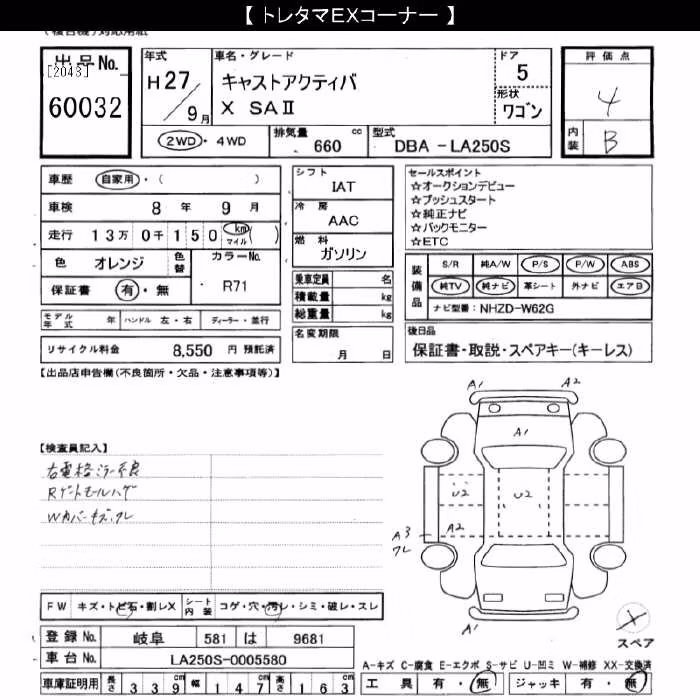 【 トレタマEXコーナー 】
(複合機)対応用紙
出品No.
[2043]
60032
年式
H27/9月
車名・グレード
キャストアクティバ
X SAⅡ
ドア
5
形状
ワゴン
評価点
4
内装 B
2WD・4WD
排気量 660 cc
型式 DBA-LA250S
車歴 自家用・( )
車検 8年 9月
走行 13万0千150 km マイル ( )
色 オレンジ 色替
カラーNo. R71
保証書 有・無
モデル年式 年 ハンドル 左・右 ディーラー・並行
リサイクル料金 8,550 円 預託済
シフト
IAT
冷房
AAC
燃料
ガソリン
乗車定員 名
積載量 kg
総重量 kg
名変期限
月 日
セールスポイント
☆オークションデビュー
☆プッシュスタート
☆純正ナビ
☆バックモニター
☆ETC
装備品 S/R 純A/W P/S P/W ABS
純TV 純ナビ 革シート 外ナビ エアB
ナビ型番: NHZD-W62G
後日品
保証書・取説・スペアキー(キーレス)
【出品店申告欄(不良箇所・欠品・注意事項等)】
【検査員記入】
右電格ミラー不良
Rゲートモールハゲ
Wカバーキズ、ワレ
A1 A2
A1
U2 U2
A3 ワレ A2
A1
FW キズ・トビ石・割レX シート内装 コゲ・穴・汚レ・シミ・破レ・スレ
登録No. 岐阜 581 は 9681
車台No. LA250S-0005580
車庫証明用 長さ 339cm 幅 147cm 高さ 163cm
X
スペア
A-キズ C-腐食 E-エクボ S-サビ U-凹ミ W-補修 XX-交換済
工具 有・無 ジャッキ 有・無